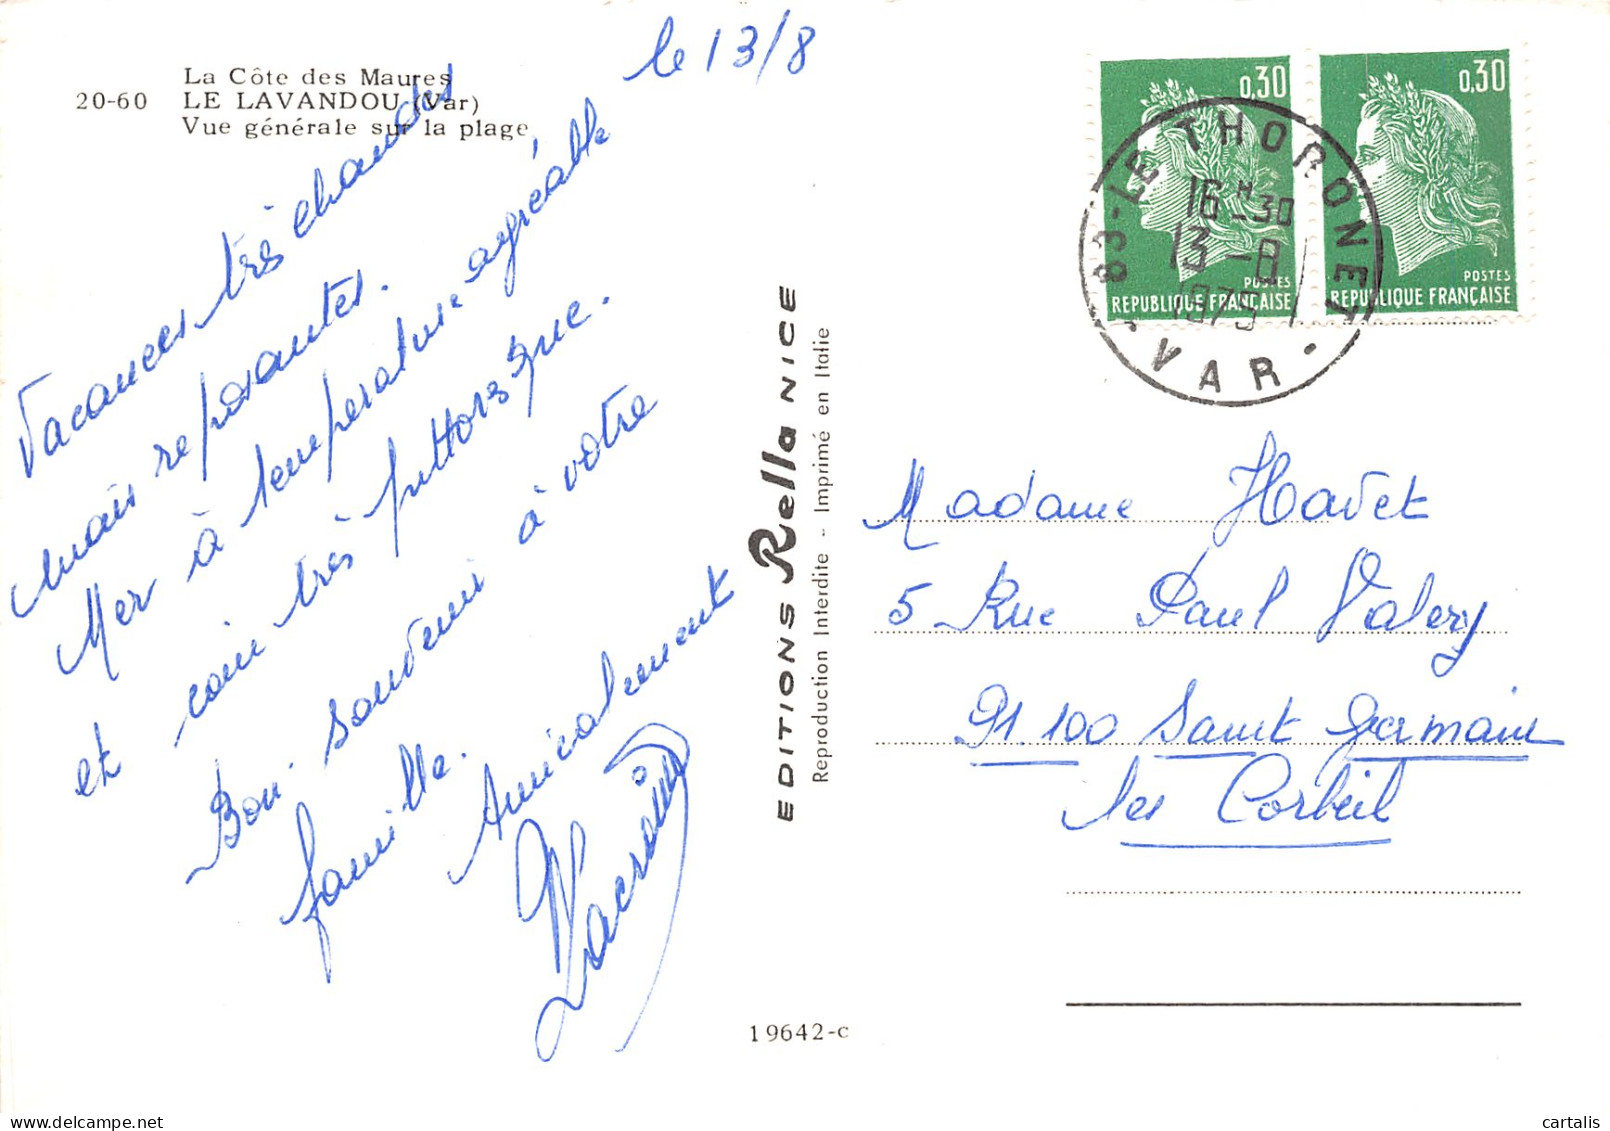 le 13/8
La Côte des Maures
20-60 LE LAVANDOU (Var)
Vue générale sur la plage
Vacances très chaudes
mais reposantes.
Mer à température agréable
et coin très pittoresque.
Bon souvenir à votre
famille.
Amicalement
EDITIONS Rella NICE
Reproduction Interdite - Imprimé en Italie
19642-c
0,30
POSTES
REPUBLIQUE FRANÇAISE
0,30
POSTES
REPUBLIQUE FRANÇAISE
83-LE THORONET
16H-30
13-8
1975
VAR
Madame Havet
5 Rue Paul Valery
91.100 Saint Germain
les Corbeil
cartalis
delcampe.net